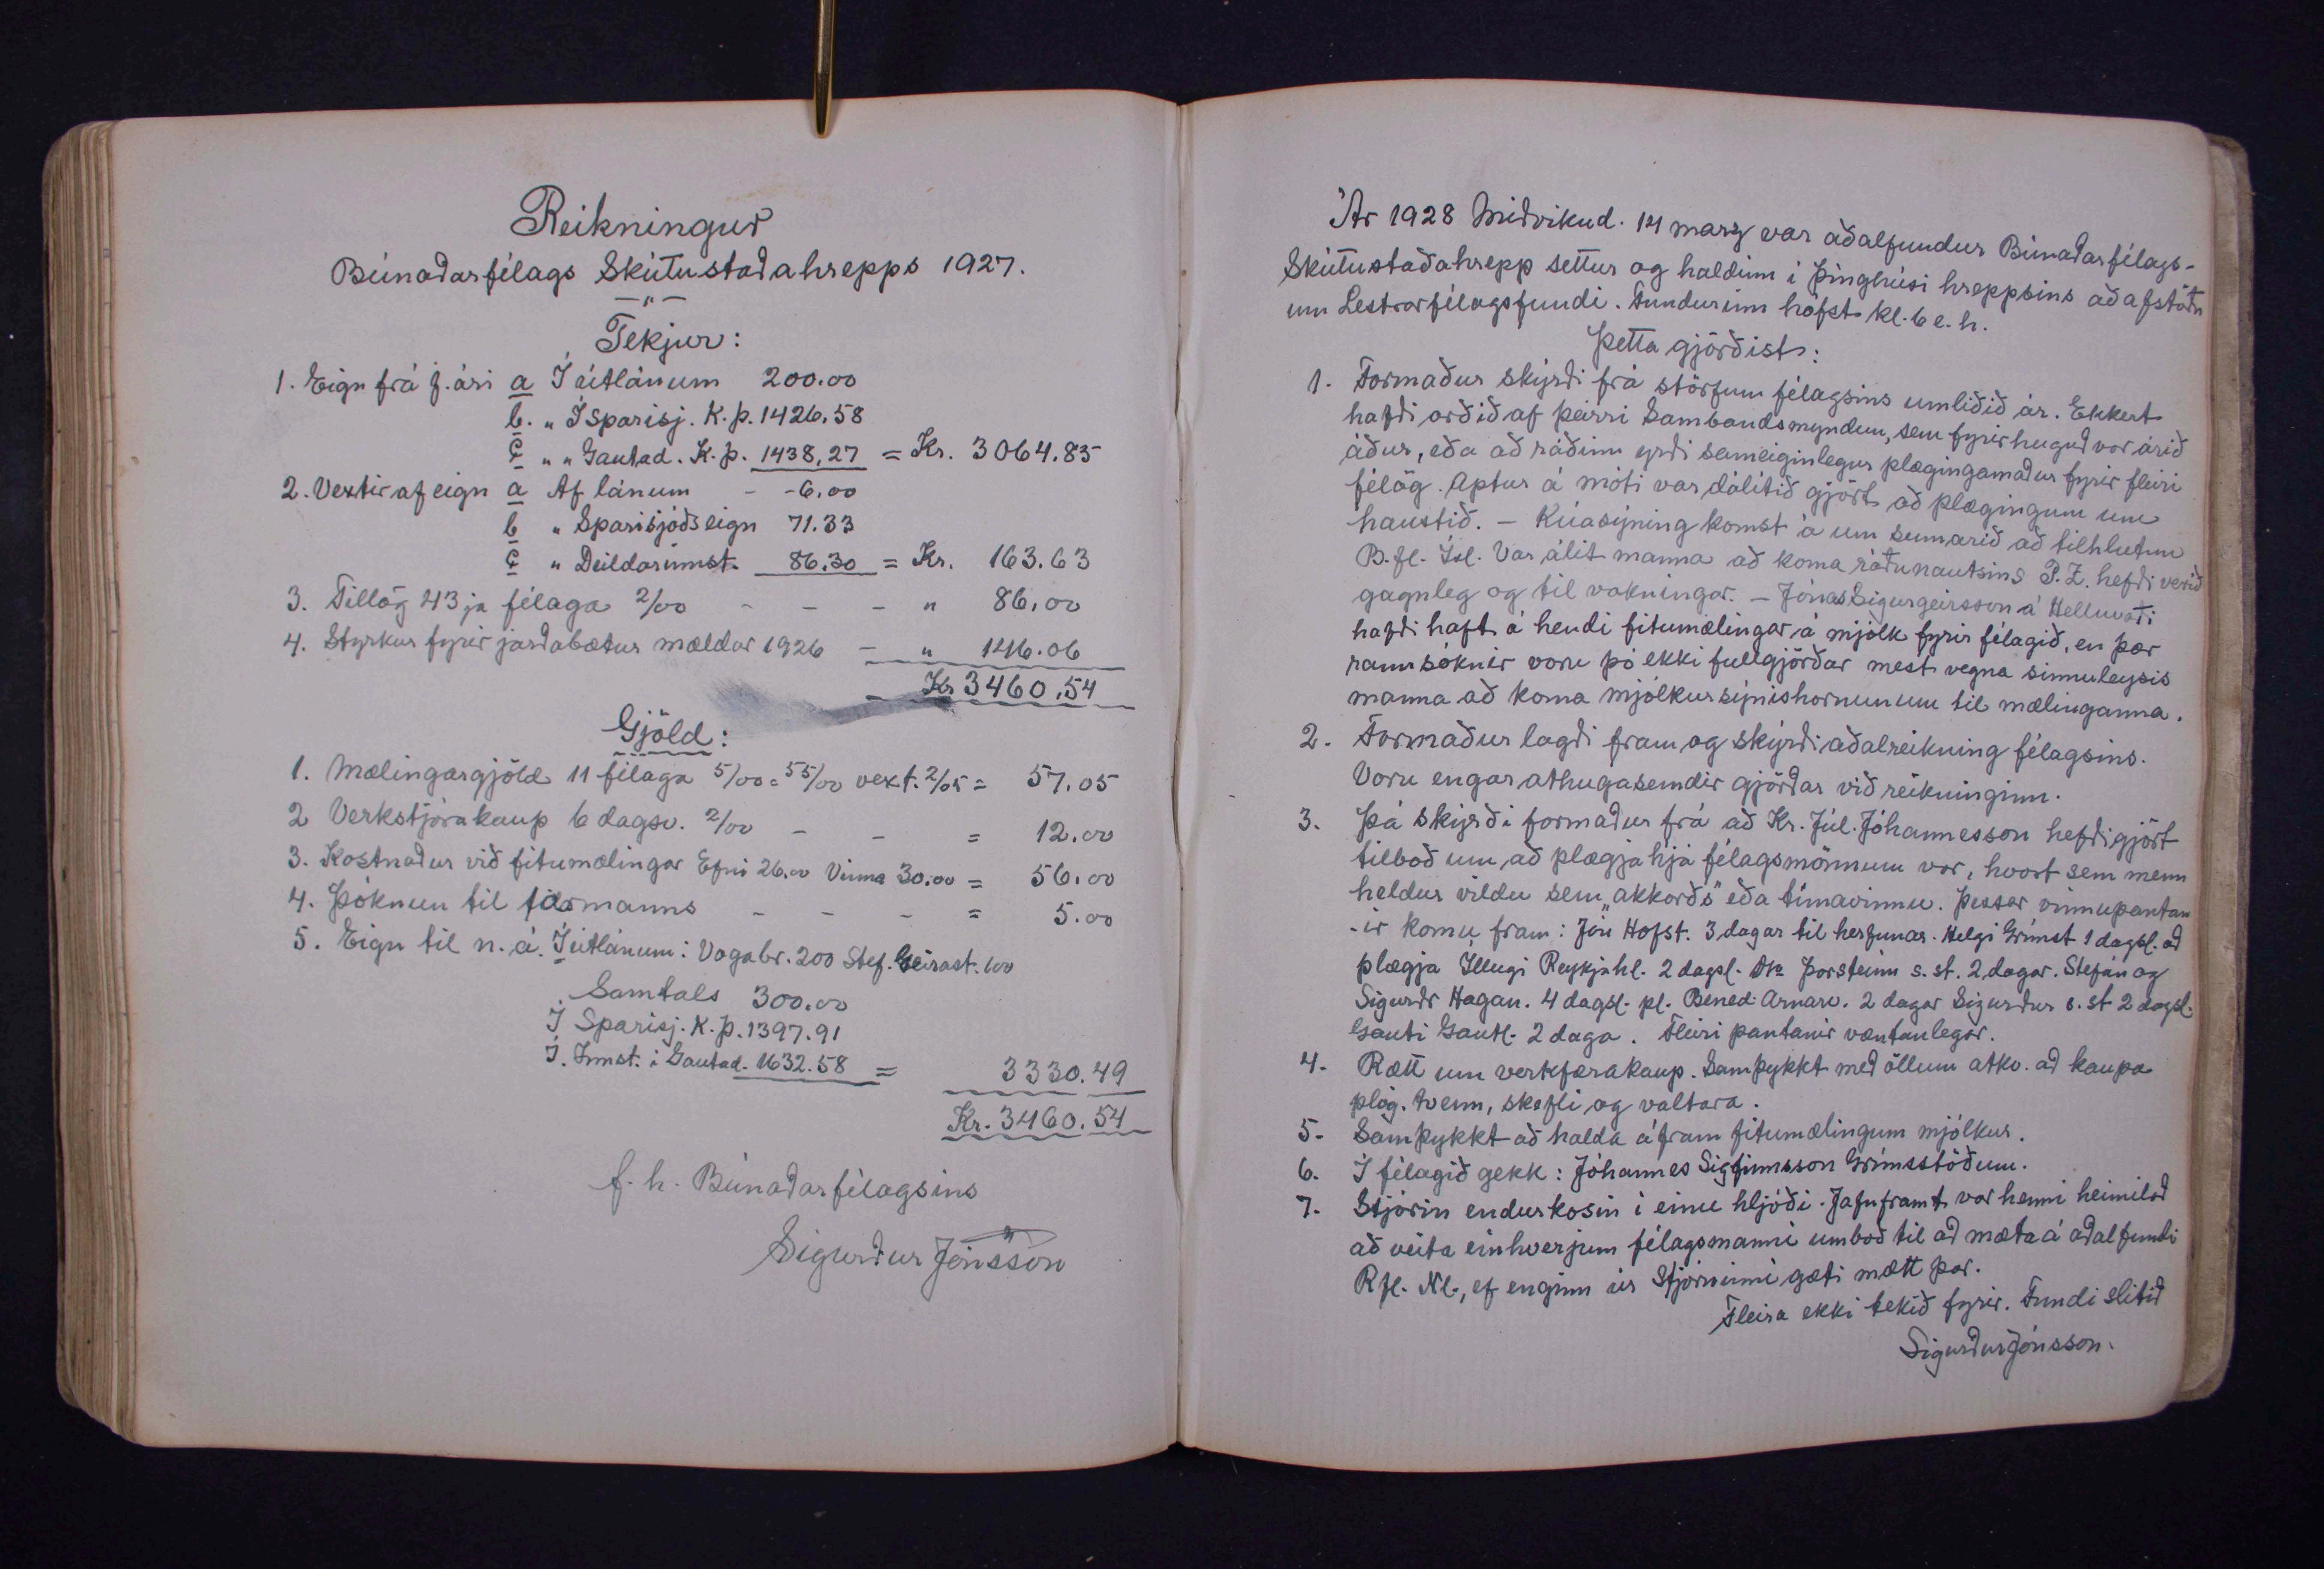 Reikningur
Búnaðarfélags Skútustaðahrepps 1927.
—"—
Tekjur:
1. Eign frá f. ári a Í útlánum 200.00
b. " Í Sparisj. K.Þ. 1426.58
c " " Gautad. K.Þ. 1438,27 = Kr. 3064.85
2. Vextir af eign a Af lánum - - 6.00
b " Sparisjóðseign 71.33
c " Deildarinnst. 86.30 = Kr. 163.63
3. Tillög 43ja félaga 2/00 - - - " 86,00
4. Styrkur fyrir jarðabætur mældar 1926 - " 146.06
Kr 3460,54
Gjöld:
1. Mælingargjöld 11 félaga 5/00 = 55/00 vext. 2/05 = 57.05
2 Verkstjórakaup 6 dagsv. 2/00 - - = 12.00
3. Kostnaður við fitumælingar Efni 26.00 Vinna 30.00 = 56.00
4. Þóknun til formanns - - - = 5.00
5. Eign til n. á. Í útlánum: Vogabr. 200 Stef. Geirast. 100
Samtals 300.00
Í Sparisj. K.Þ. 1397.91
Í. Innst. í Gautad. 1632.58 = 3330.49
Kr. 3460.54
f. h. Búnaðarfélagsins
Sigurður Jónsson
Ár 1928 Miðvikud. 14 marz var aðalfundur Búnaðarfélags-
Skútustaðahrepp settur og haldinn í þinghúsi hreppsins að afstöðn
um Lestrarfélagsfundi. Fundurinn hófst kl. 6 e.h.
Þetta gjörðist:
1. Formaður skýrði frá störfum félagsins umliðið ár. Ekkert
hafði orðið af þeirri Sambandsmyndun, sem fyrirhuguð var árið
áður, eða að ráðinn yrði sameiginlegur plægingamaður fyrir fleiri
félög. Aptur á móti var dálítið gjört að plægingum um
haustið. - Kúasýning komst á um sumarið að tilhlutun
B.fl. Ísl. Var álit manna að koma ráðunautsins P.Z. hefði verið
gagnleg og til vakningar. - Jónas Sigurgeirsson á Helluvaði
hafði haft á hendi fitumælingar á mjólk fyrir félagið, en þær
rannsóknir voru þó ekki fullgjörðar mest vegna sinnuleysis
manna að koma mjólkursýnishornunum til mælinganna.
2. Formaður lagði fram og skýrði aðalreikning félagsins.
Voru engar athugasemdir gjörðar við reikninginn.
3. Þá skýrði formaður frá að Kr. Júl. Jóhannesson hefði gjört
tilboð um að plægja hjá félagsmönnum vor, hvort sem menn
heldur vildu sem „akkorðs" eða tímavinnu. Þessar vinnupantan
-ir komu fram: Jón Hofst. 3 dagar til herfunar. Helgi Grímst 1 dagsl. að
plægja Illugi Reykjahl. 2 dagsl. Þorsteinn s.st. 2 dagar. Stefán og
Sigurðr Hagan. 4 dagsl. pl. Bened Arnarv. 2 dagar Sigurður s.st 2 dagsl.
Gauti Gautl. 2 daga. Fleiri pantanir væntanlegar.
4. Rætt um verkfærakaup. Samþykkt með öllum atkv. að kaupa
plóg. tvenn, skefli og valtara.
5. Samþykkt að halda áfram fitumælingum mjólkur.
6. Í félagið gekk: Jóhannes Sigfinnsson Grímsstöðum.
7. Stjórin endurkosin í einu hljóði. Jafnframt var henni heimilað
að veita einhverjum félagsmanni umboð til að mæta á aðalfundi
Rfl. Nl., ef enginn úr Stjórninni gæti mætt þar.
Fleira ekki tekið fyrir. Fundi slitið
Sigurður Jónsson.